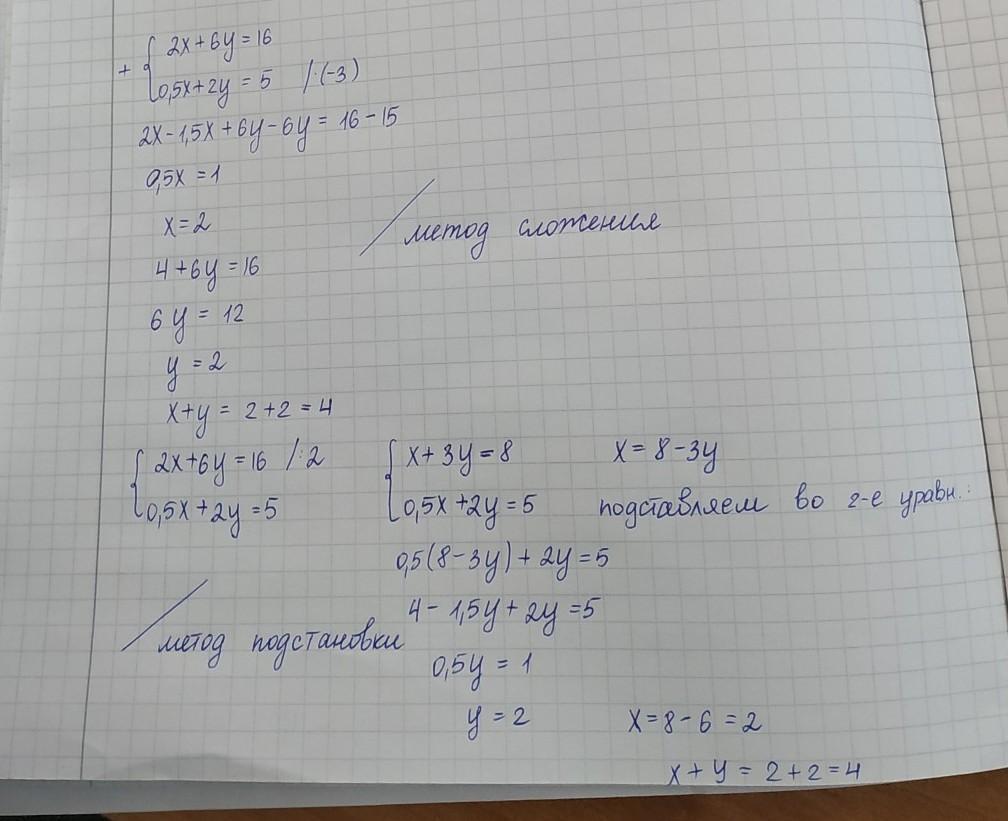 + { 2x+6y=16
0,5x+2y = 5 /·(-3)
2x-1,5x+6y-6y= 16-15
0,5x = 1
x=2
метод сложения
4+6y=16
6y = 12
y = 2
x+y = 2+2 = 4
{ 2x+6y=16 /:2 { x+3y=8 x = 8-3y
0,5x+2y=5 0,5x+2y=5 подставляем во 2-е уравн.:
0,5(8-3y)+2y=5
4-1,5y+2y=5
метод подстановки
0,5y = 1
y = 2 x=8-6=2
x+y = 2+2=4